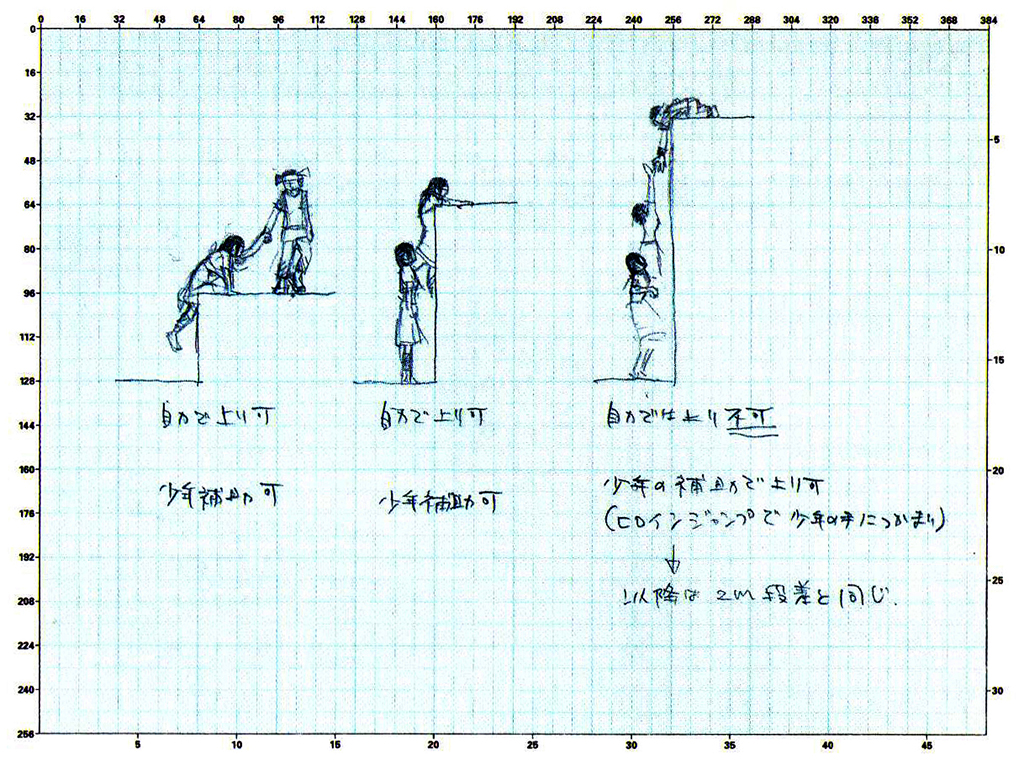 0 16 32 48 64 80 96 112 128 144 160 176 192 208 224 240 256 272 288 304 320 336 352 368 384
0
16
32
48
64
80
96
112
128
144
160
176
192
208
224
240
256
5
10
15
20
25
30
自力で上り可
自力で上り可
自力では上り不可
少年補助可
少年補助可
少年の補助で上り可
(ヒロインジャンプで少年の手につかまり)
↓
以降は2m段差と同じ.
5 10 15 20 25 30 35 40 45